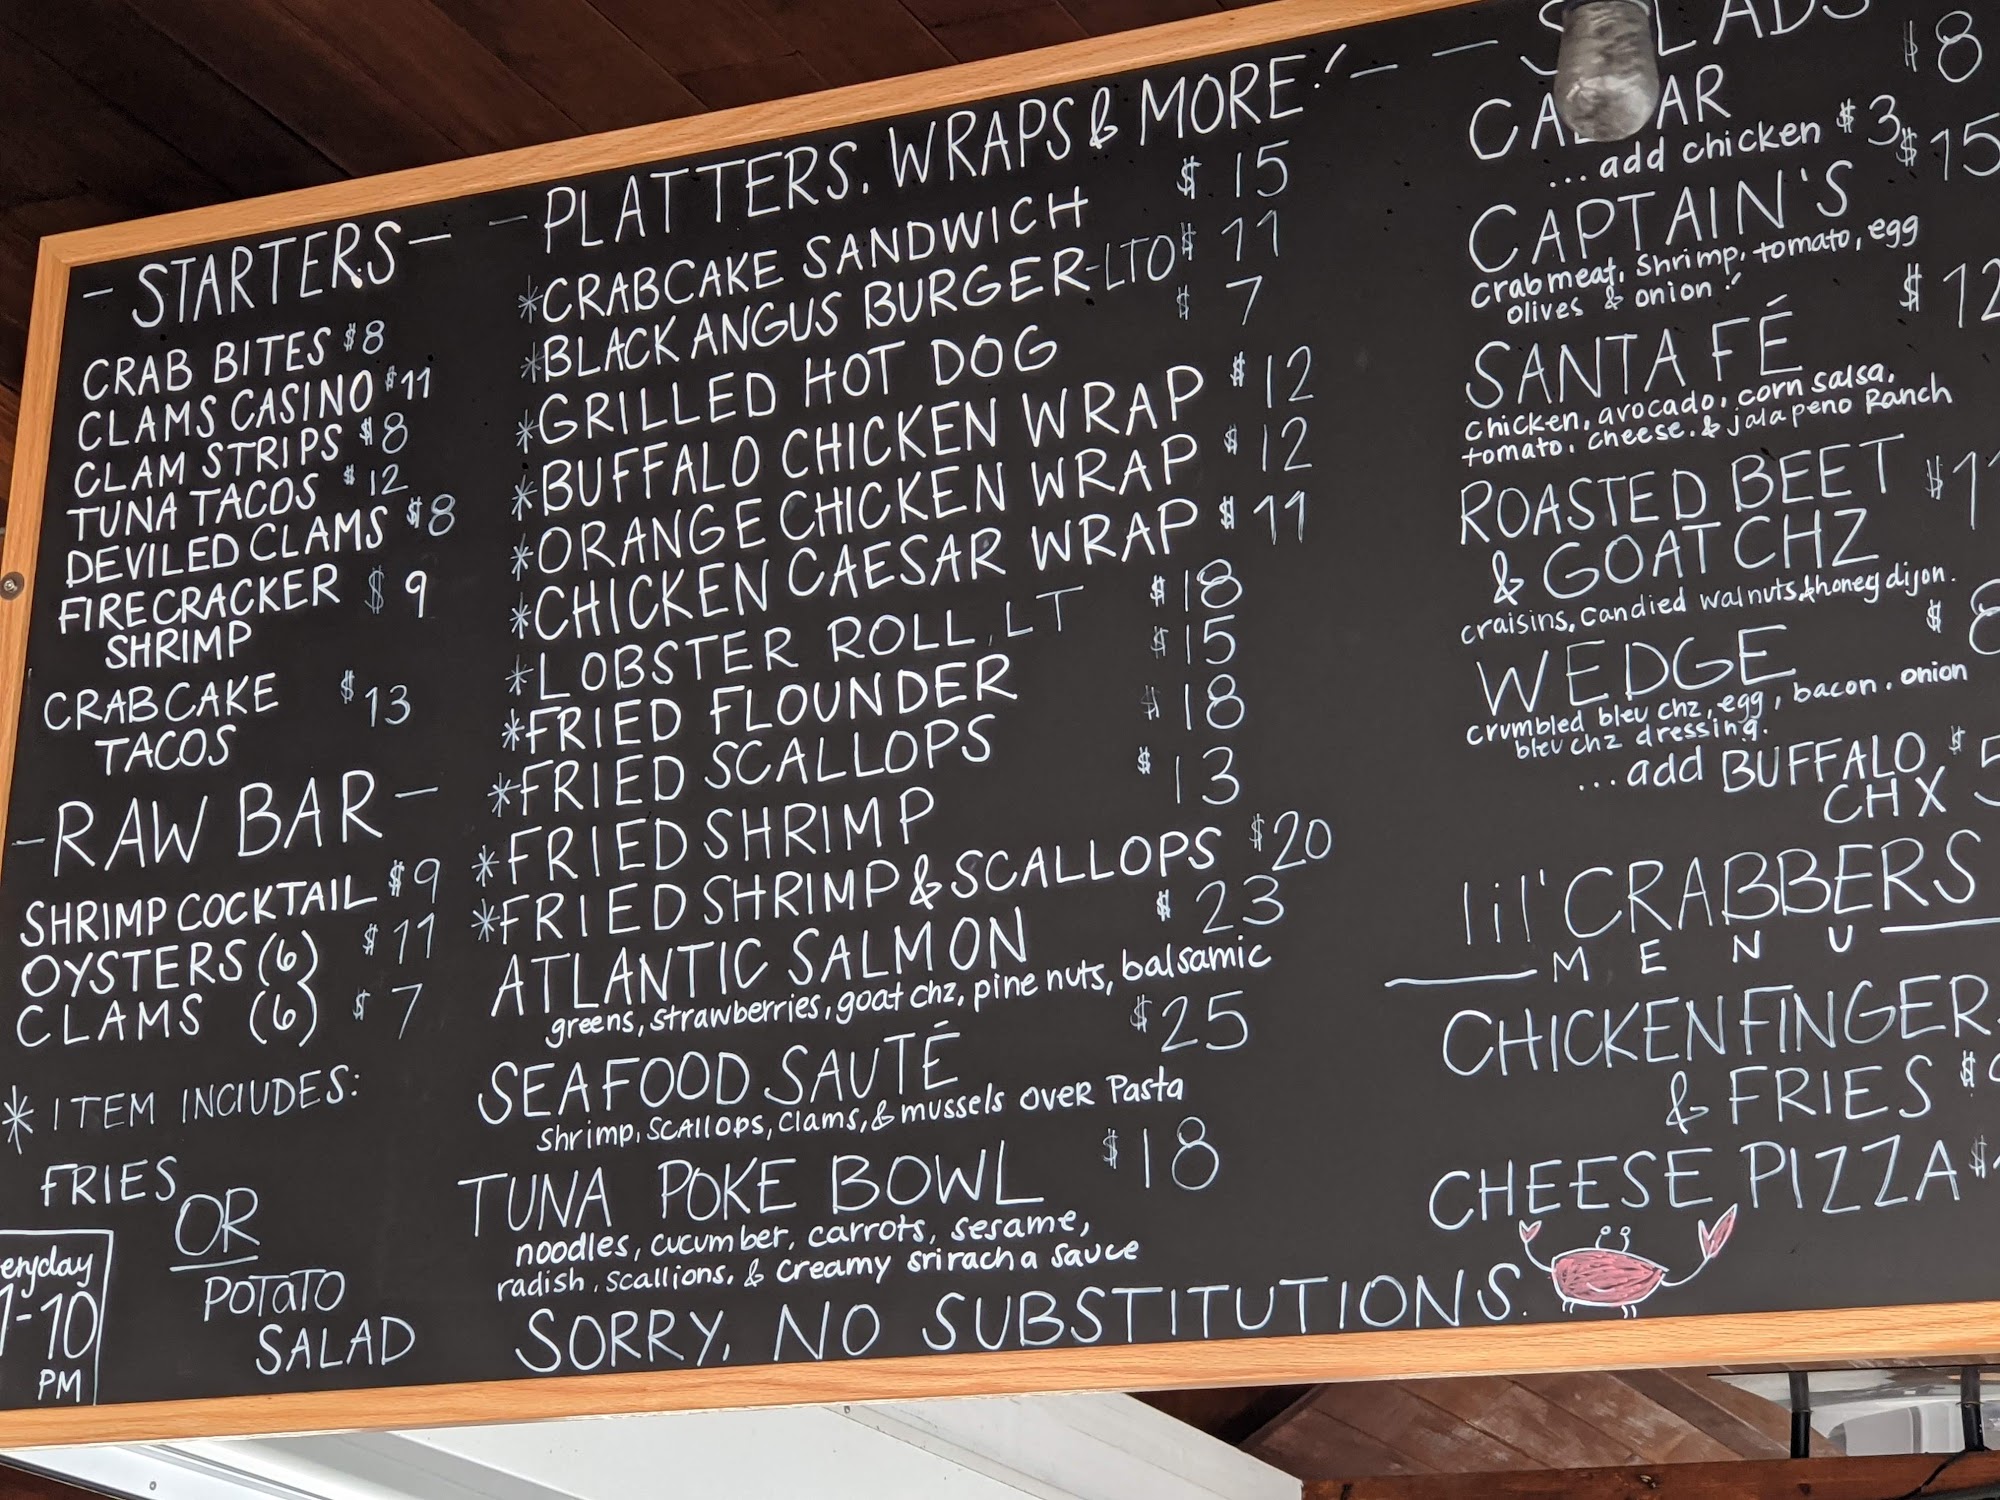 - STARTERS -
CRAB BITES $8
CLAMS CASINO $11
CLAM STRIPS $8
TUNA TACOS $12
DEVILED CLAMS $8
FIRECRACKER $9
SHRIMP
CRABCAKE $13
TACOS
- RAW BAR -
SHRIMP COCKTAIL $9
OYSTERS (6) $11
CLAMS (6) $7
* ITEM INCLUDES:
FRIES
OR
POTATO
SALAD
-10
PM
- PLATTERS, WRAPS & MORE! -
*CRABCAKE SANDWICH $15
*BLACK ANGUS BURGER-LTO $11
*GRILLED HOT DOG $7
*BUFFALO CHICKEN WRAP $12
*ORANGE CHICKEN WRAP $12
*CHICKEN CAESAR WRAP $11
*LOBSTER ROLL, LT $18
*FRIED FLOUNDER $15
*FRIED SCALLOPS $18
*FRIED SHRIMP $13
*FRIED SHRIMP & SCALLOPS $20
ATLANTIC SALMON $23
greens, strawberries, goat chz, pine nuts, balsamic
SEAFOOD SAUTÉ $25
shrimp, scallops, clams, & mussels over Pasta
TUNA POKE BOWL $18
noodles, cucumber, carrots, sesame,
radish, scallions, & creamy sriracha sauce
SORRY, NO SUBSTITUTIONS.
$8
...add chicken $3
CAPTAIN'S $15
crabmeat, shrimp, tomato, egg
olives & onion!
SANTA FÉ $12
chicken, avocado, corn salsa,
tomato, cheese, & jalapeno Ranch
ROASTED BEET
& GOAT CHZ
craisins, candied walnuts, & honey dijon.
WEDGE $8
crumbled bleu chz, egg, bacon, onion
bleu chz dressing.
...add BUFFALO $5
CHX
lil' CRABBERS
MENU
CHICKEN FINGER
& FRIES
CHEESE PIZZA